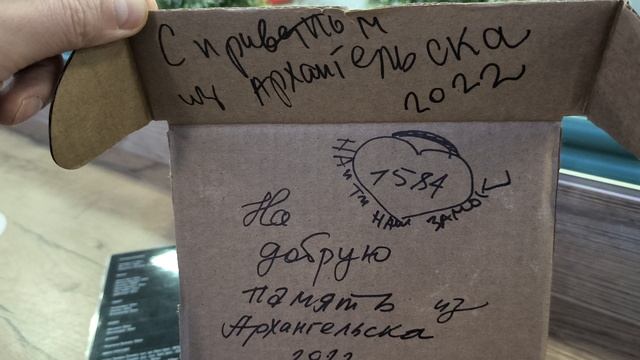 С приветом
из Архангельска
2022
1584
НАЙТИ НАШ ЗАМОК
На
добрую
память из
Архангельска
2022